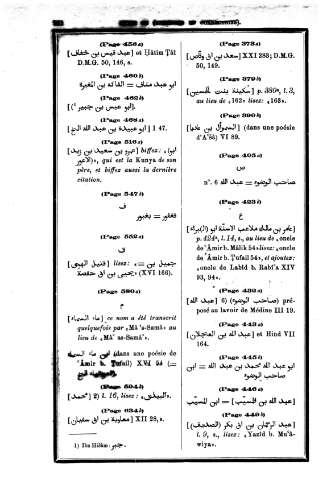 (Page 456 a)
[عبد قيس بن خفاف] et Ḥâtim Ṭât
D.M.G. 50, 146, s.
(Page 460 b)
ابو عبد مناف = الفاكه بن المغيرة
(Page 462 b)
[ابو عبس بن جبير ¹)]
(Page 468 a)
[ابو عبيدة بن عبد الله الخ] I 47.
(Page 516 b)
[عمرو بن سعيد بن زيد] biffez: «ابو
الاعور», qui est la Kunya de son
père, et biffez aussi la dernière
citation.
(Page 547 b)
ف
فغفور = بغبور
(Page 552 b)
[قتيل الهيى] lisez: = جميل بن
يحيى بن ابى حفصة» (XVI 166).
(Page 590 a)
م
[ماء السماء] ce nom a été transcrit
quelquefois par „Mâ 's-Samâ" au
lieu de „Mâ' as-Samâ".
(dans une poésie de
ʿÂmir b. Ṭufail) XVI 24 (=
(Page 594 b)
[محمد] 2) l. 16, lisez: «البيذق».
(Page 634 b)
[معاوية بن ابى سفيان] XII 28, s.
1) Ibn Hišâm: جبر.
(Page 373 a)
[سعد بن ابى وقاص] XXI 288; D.M.G.
50, 149.
(Page 379 b)
[سكينة بنت الحسين] p. 380a, l. 3,
au lieu de «162» lisez: «163».
(Page 390 b)
[السموأل بن عاديا] (dans une poésie
d'Aʿšâ) VI 89.
(Page 405 a)
ص
صاحب الوضوء = عبد الله n°. 6
(Page 423 b)
ع
[عامر بن مالك ملاعب الاسنة ابو البراء]
p. 424a, l. 14, s., au lieu de „oncle
de ʿÂmir b. Mâlik 54" lisez: „oncle
de ʿÂmir b. Ṭufail 54", et ajoutez:
„oncle de Labîd b. Rabîʿa XIV
93, 94".
(Page 432 a)
[عبد الله] 6) (صاحب الوضوء) pré-
posé au lavoir de Médine III 19.
(Page 443 a)
[عبد الله بن العجلان] et Hind VII
164.
(Page 445 b)
ابو عبد الله محمد بن عبد الله = ابن
صاحب الوضوء
(Page 446 a)
[عبد الله بن المسيب] = ابن المسيب
(Page 449 b)
[عبد الرحمان بن ابى بكر (الصديق)]
l. 9, s., lisez: „Yazîd b. Mu'â-
wiya".